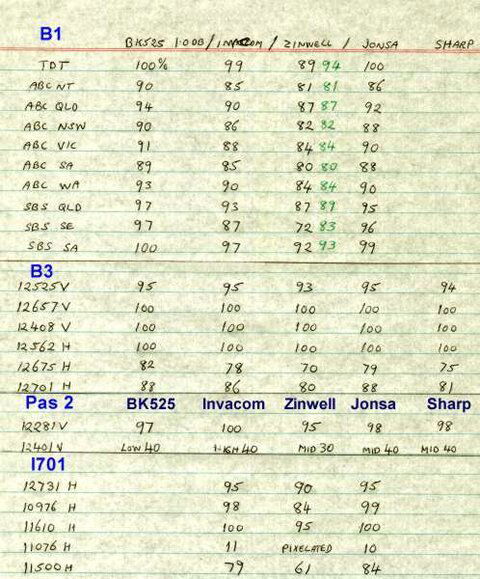 B1
BK525 1.0DB / INVACOM / ZINWELL / JONSA SHARP
TDT 100% 99 89 94 100
ABC NT 90 85 81 81 86
ABC QLD 94 90 87 87 92
ABC NSW 90 86 82 82 88
ABC VIC 91 88 84 84 90
ABC SA 89 85 80 80 88
ABC WA 93 90 84 84 90
SBS QLD 97 93 87 89 95
SBS SE 97 87 72 83 96
SBS SA 100 97 92 93 99
B3
12525V 95 95 93 95 94
12657V 100 100 100 100 100
12408 V 100 100 100 100 100
12562 H 100 100 100 100 100
12675 H 82 78 70 79 75
12701 H 88 86 80 88 81
Pas 2 BK525 Invacom Zinwell Jonsa Sharp
12281V 97 100 95 98 98
12401V LOW 40 HIGH 40 MID 30 MID 40 MID 40
I701
12731 H 95 90 95
10976 H 98 84 99
11610 H 100 95 100
11076 H 11 PIXELATED 10
11500H 79 61 84